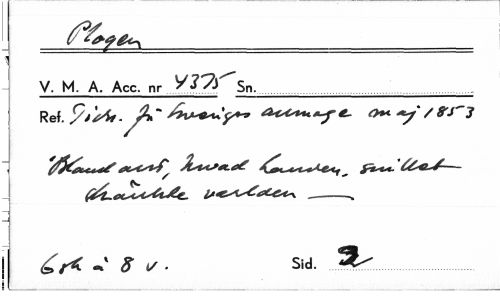 Plogen
V. M. A. Acc. nr 4375 Sn.
Ref. Tidn. för Sveriges allmoge maj 1853
"Bland allt, hvad handen, snillet
skänkte verlden —
6 str. à 8 v. Sid. 2